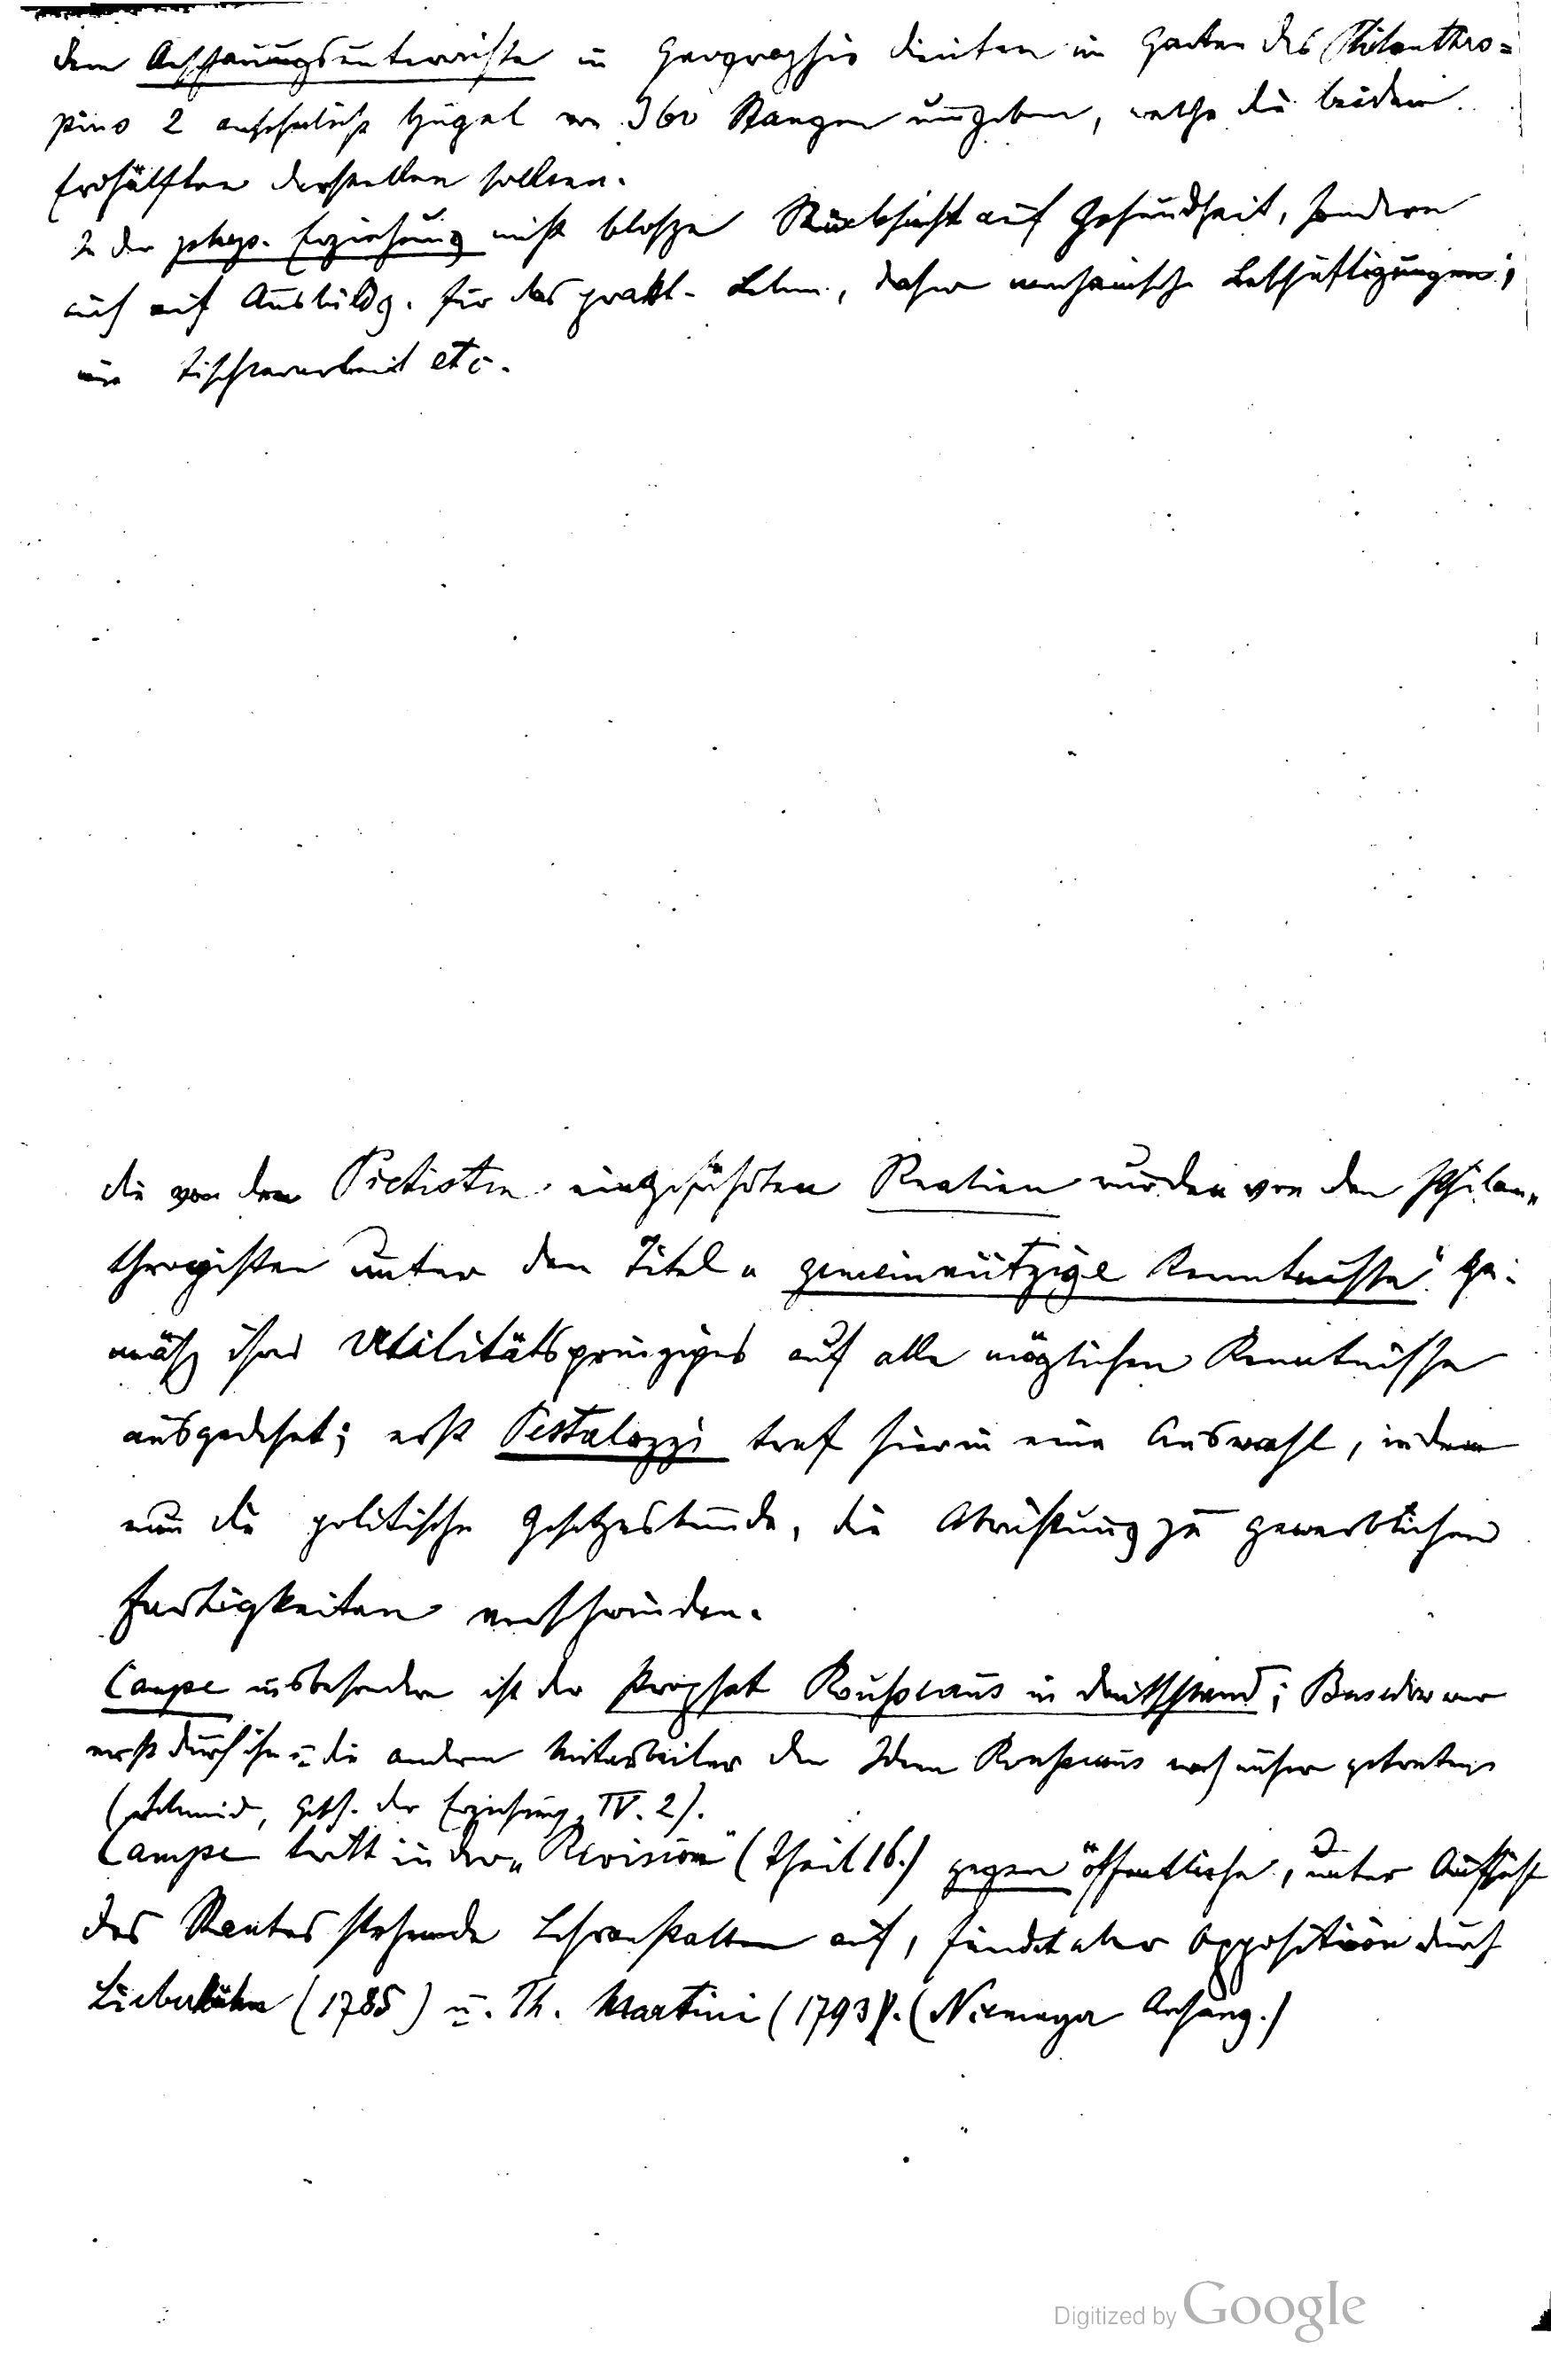 dem Anschauungsunterrichte in Geographie dienten im Garten des Philanthro=
pins 2 ansehnliche Hügel von 360 Stangen umgeben, welche die beiden
Erdhälften darstellen sollten.
In der phys. Erziehung nicht blosze Rücksicht auf Gesundheit, sondern
auch auf Ausbildg. für das prakt. Leben, daher mechanische Beschäftigungen,
wie Tischlerarbeit etc.
die von den Pietisten eingeführten Realien wurden von den Philan=
thropisten unter dem Titel „gemeinnützige Kenntnisse“ ge=
mäsz ihres Utilitätsprinzipes auf alle möglichen Kenntnisse
ausgedehnt; erst Pestalozzi traf hierin eine Auswahl, indem
nun die politische Gesetzeskunde, die Abrichtung zu gewerblichen
Fertigkeiten verschwinden.
Campe insbesondere ist der Prophet Rousseaus in Deutschland; Basedow war
erst durch ihn u. die andern Mitarbeiter den Ideen Rousseaus noch näher getreten
(Schmid, Gesch. der Erziehung, IV. 2).
Campe tritt in der „Revision“ (Theil 16.) gegen öffentliche, unter Aufsicht
des Staates stehende Lehranstalten auf, findet aber Opposition durch
Lieberkühn (1785) u. Th. Martini (1793). (Niemeyer Anhang.)
Digitized by Google